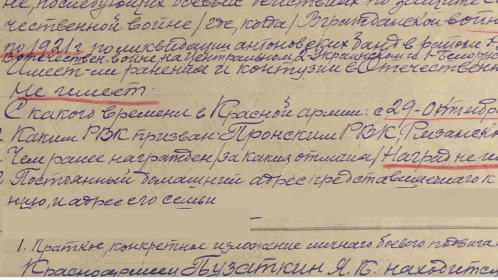 не, последующих боевых действиях по защите С
чественной войне /где, когда/ В гражданской войн
по 1921 г по ликвидации антоновских банд в районе
Отечествен. войне, на Центральном, 2 Украинском и 1 Белорус
Имеет-ли ранения и контузии в Отечествен
Не имеет.
С какого времени в Красной армии: с 29-октября
Каким РВК призван: Пронским РВК, Рязанско
Чем ранее награжден /за какия отличия/ Наград не и
Постоянный домашний адрес представляемаго к
нию, и адрес его семьи
1. Краткое, конкретное изложение личнаго боевого подвига
Красноармеец Пузаткин Я.К. находится